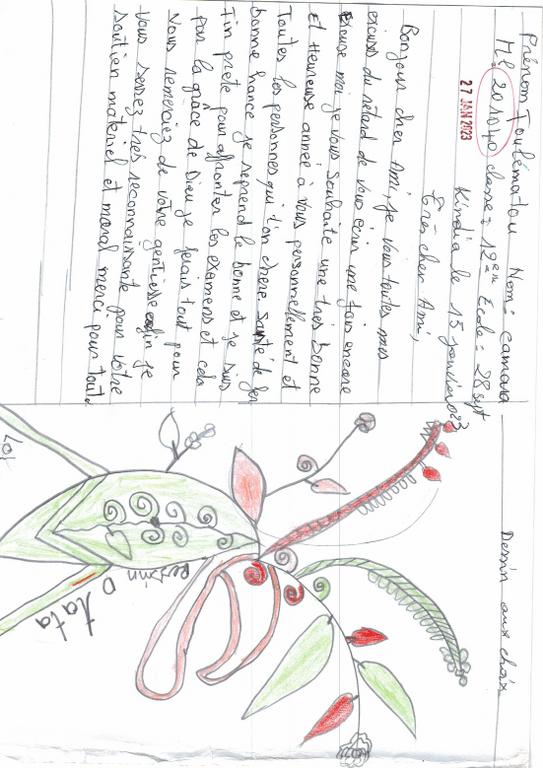 Prénom Toulématou Nom: Camara
Me: 201040 classe: 12ème Ecole: 28 sept
27 JAN 2023
Kindia le 15 janvier 023
Très cher Ami,
Bonjour cher Ami, je vous toutes mes
excuses du retard de vous écrir une fois encore
excuse moi je vous souhaite une très bonne
et Heureuse année à vous personnellement et
Toutes les personnes qui l'on chere. Santé de fer
bonne chance je reprend le bonne et je suis
Fin prète pour affronter les examens et cela
par la grâce de Dieu je ferais tout pour
vous remerciez de votre gentiesse enfin je
vous serez très reconnaissante pour votre
soutien materiel et moral merci pour toute
Dessin aux choix
Dessin D
tata